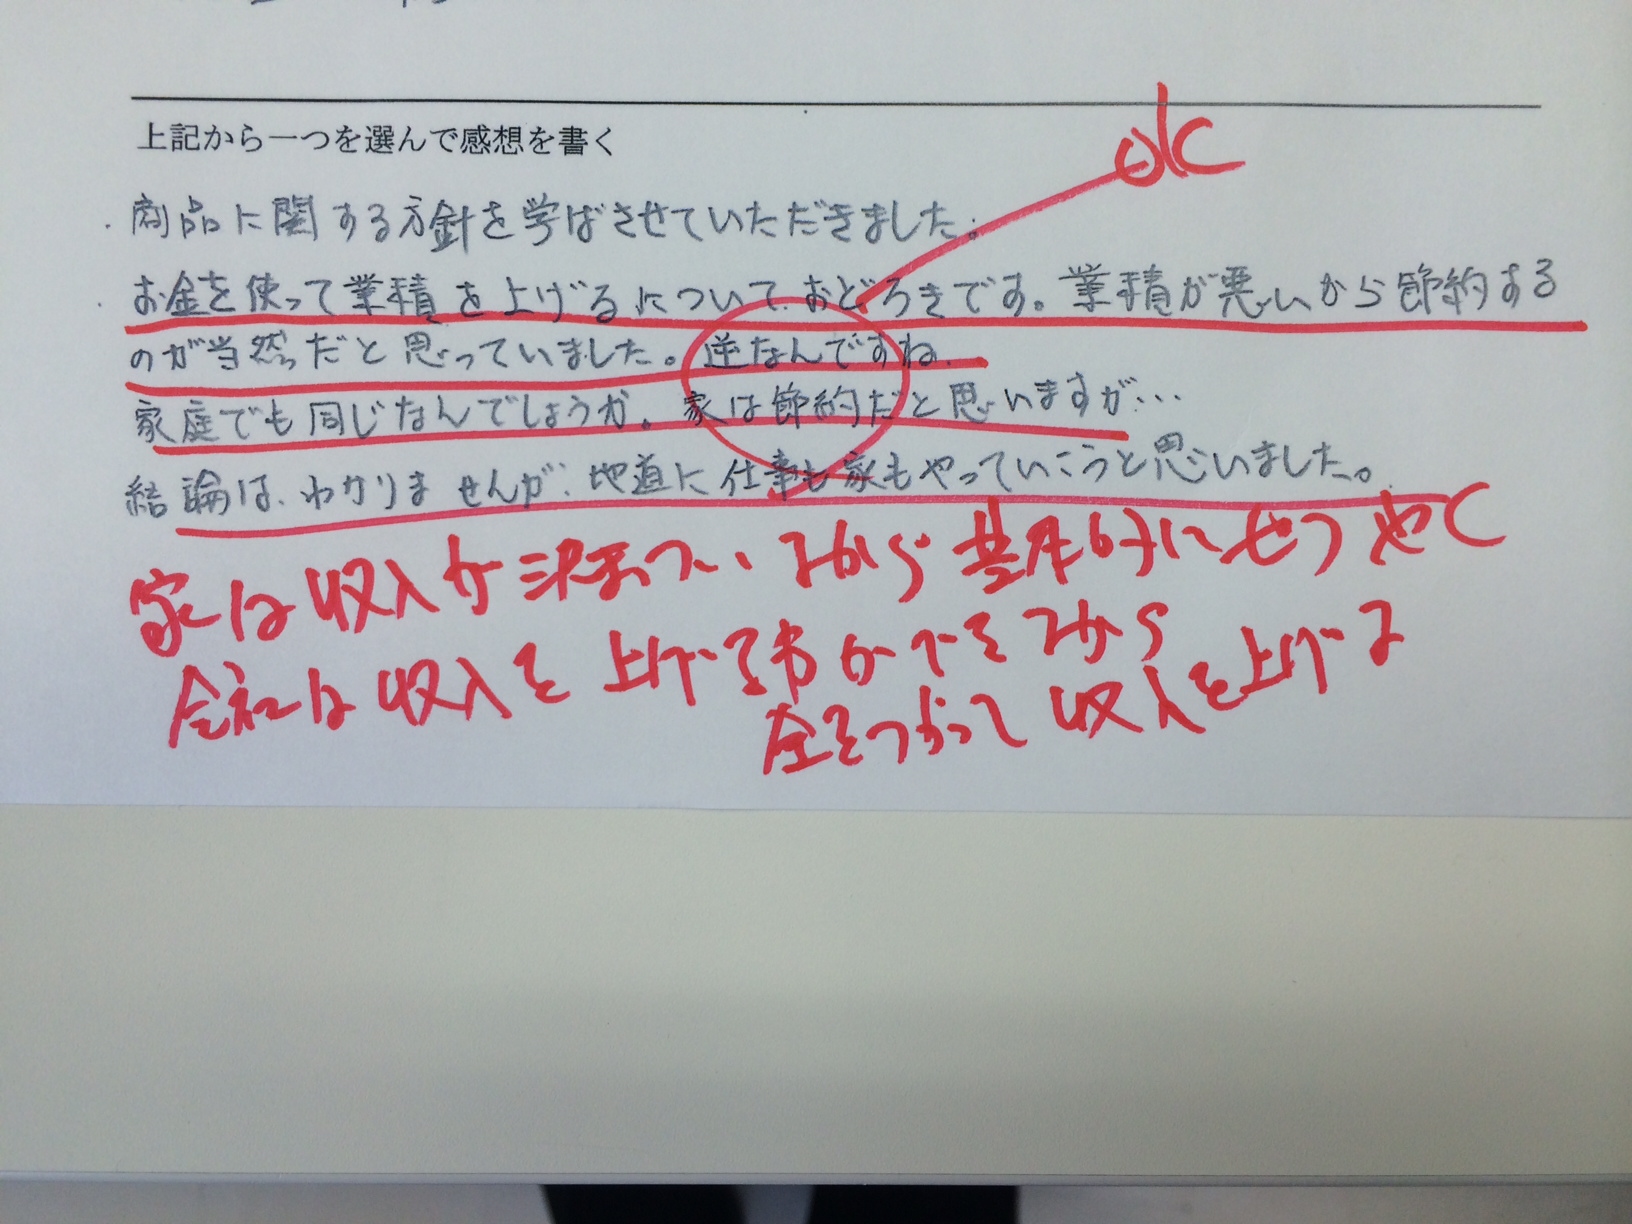 上記から一つを選んで感想を書く
ok
・商品に関する方針を学ばさせていただきました。
・お金を使って業積を上げるについて、おどろきです。業積が悪いから節約する
のが当然だと思っていました。逆なんですね。
家庭でも同じなんでしょうか。家は節約だと思いますが…
結論は、わかりませんが、地道に仕事も家もやっていこうと思いました。
家は収入が決まっているから基本的にせつやく
会社は収入を上げる事ができるから
金をつかって収入を上げる